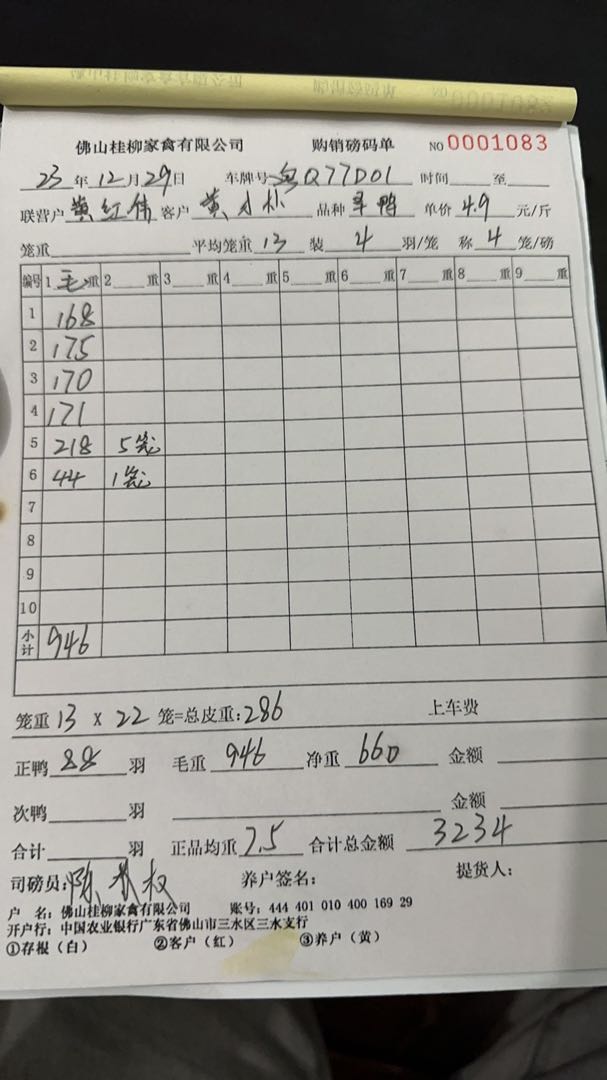 佛山桂柳家禽有限公司 购销磅码单 NO 0001083
23年12月29日 车牌号粤Q77D01 时间 至
联营户 黄红伟 客户 黄 品种 鸭 单价 4.9 元/斤
笼重 平均笼重 13 装 4 羽/笼 称 4 笼/磅
编号 1 毛重 2 重 3 重 4 重 5 重 6 重 7 重 8 重 9 重
1 168
2 175
3 170
4 171
5 218 5笼
6 44 1笼
7
8
9
10
小计 946
笼重 13 X 22 笼=总皮重:286 上车费
正鸭 88 羽 毛重 946 净重 660 金额
次鸭 羽 金额
合计 羽 正品均重 7.5 合计总金额 3234
司磅员:陈 权 养户签名: 提货人:
户 名:佛山桂柳家禽有限公司 账号:444 401 010 400 169 29
开户行:中国农业银行广东省佛山市三水区三水支行
①存根(白) ②客户(红) ③养户(黄)